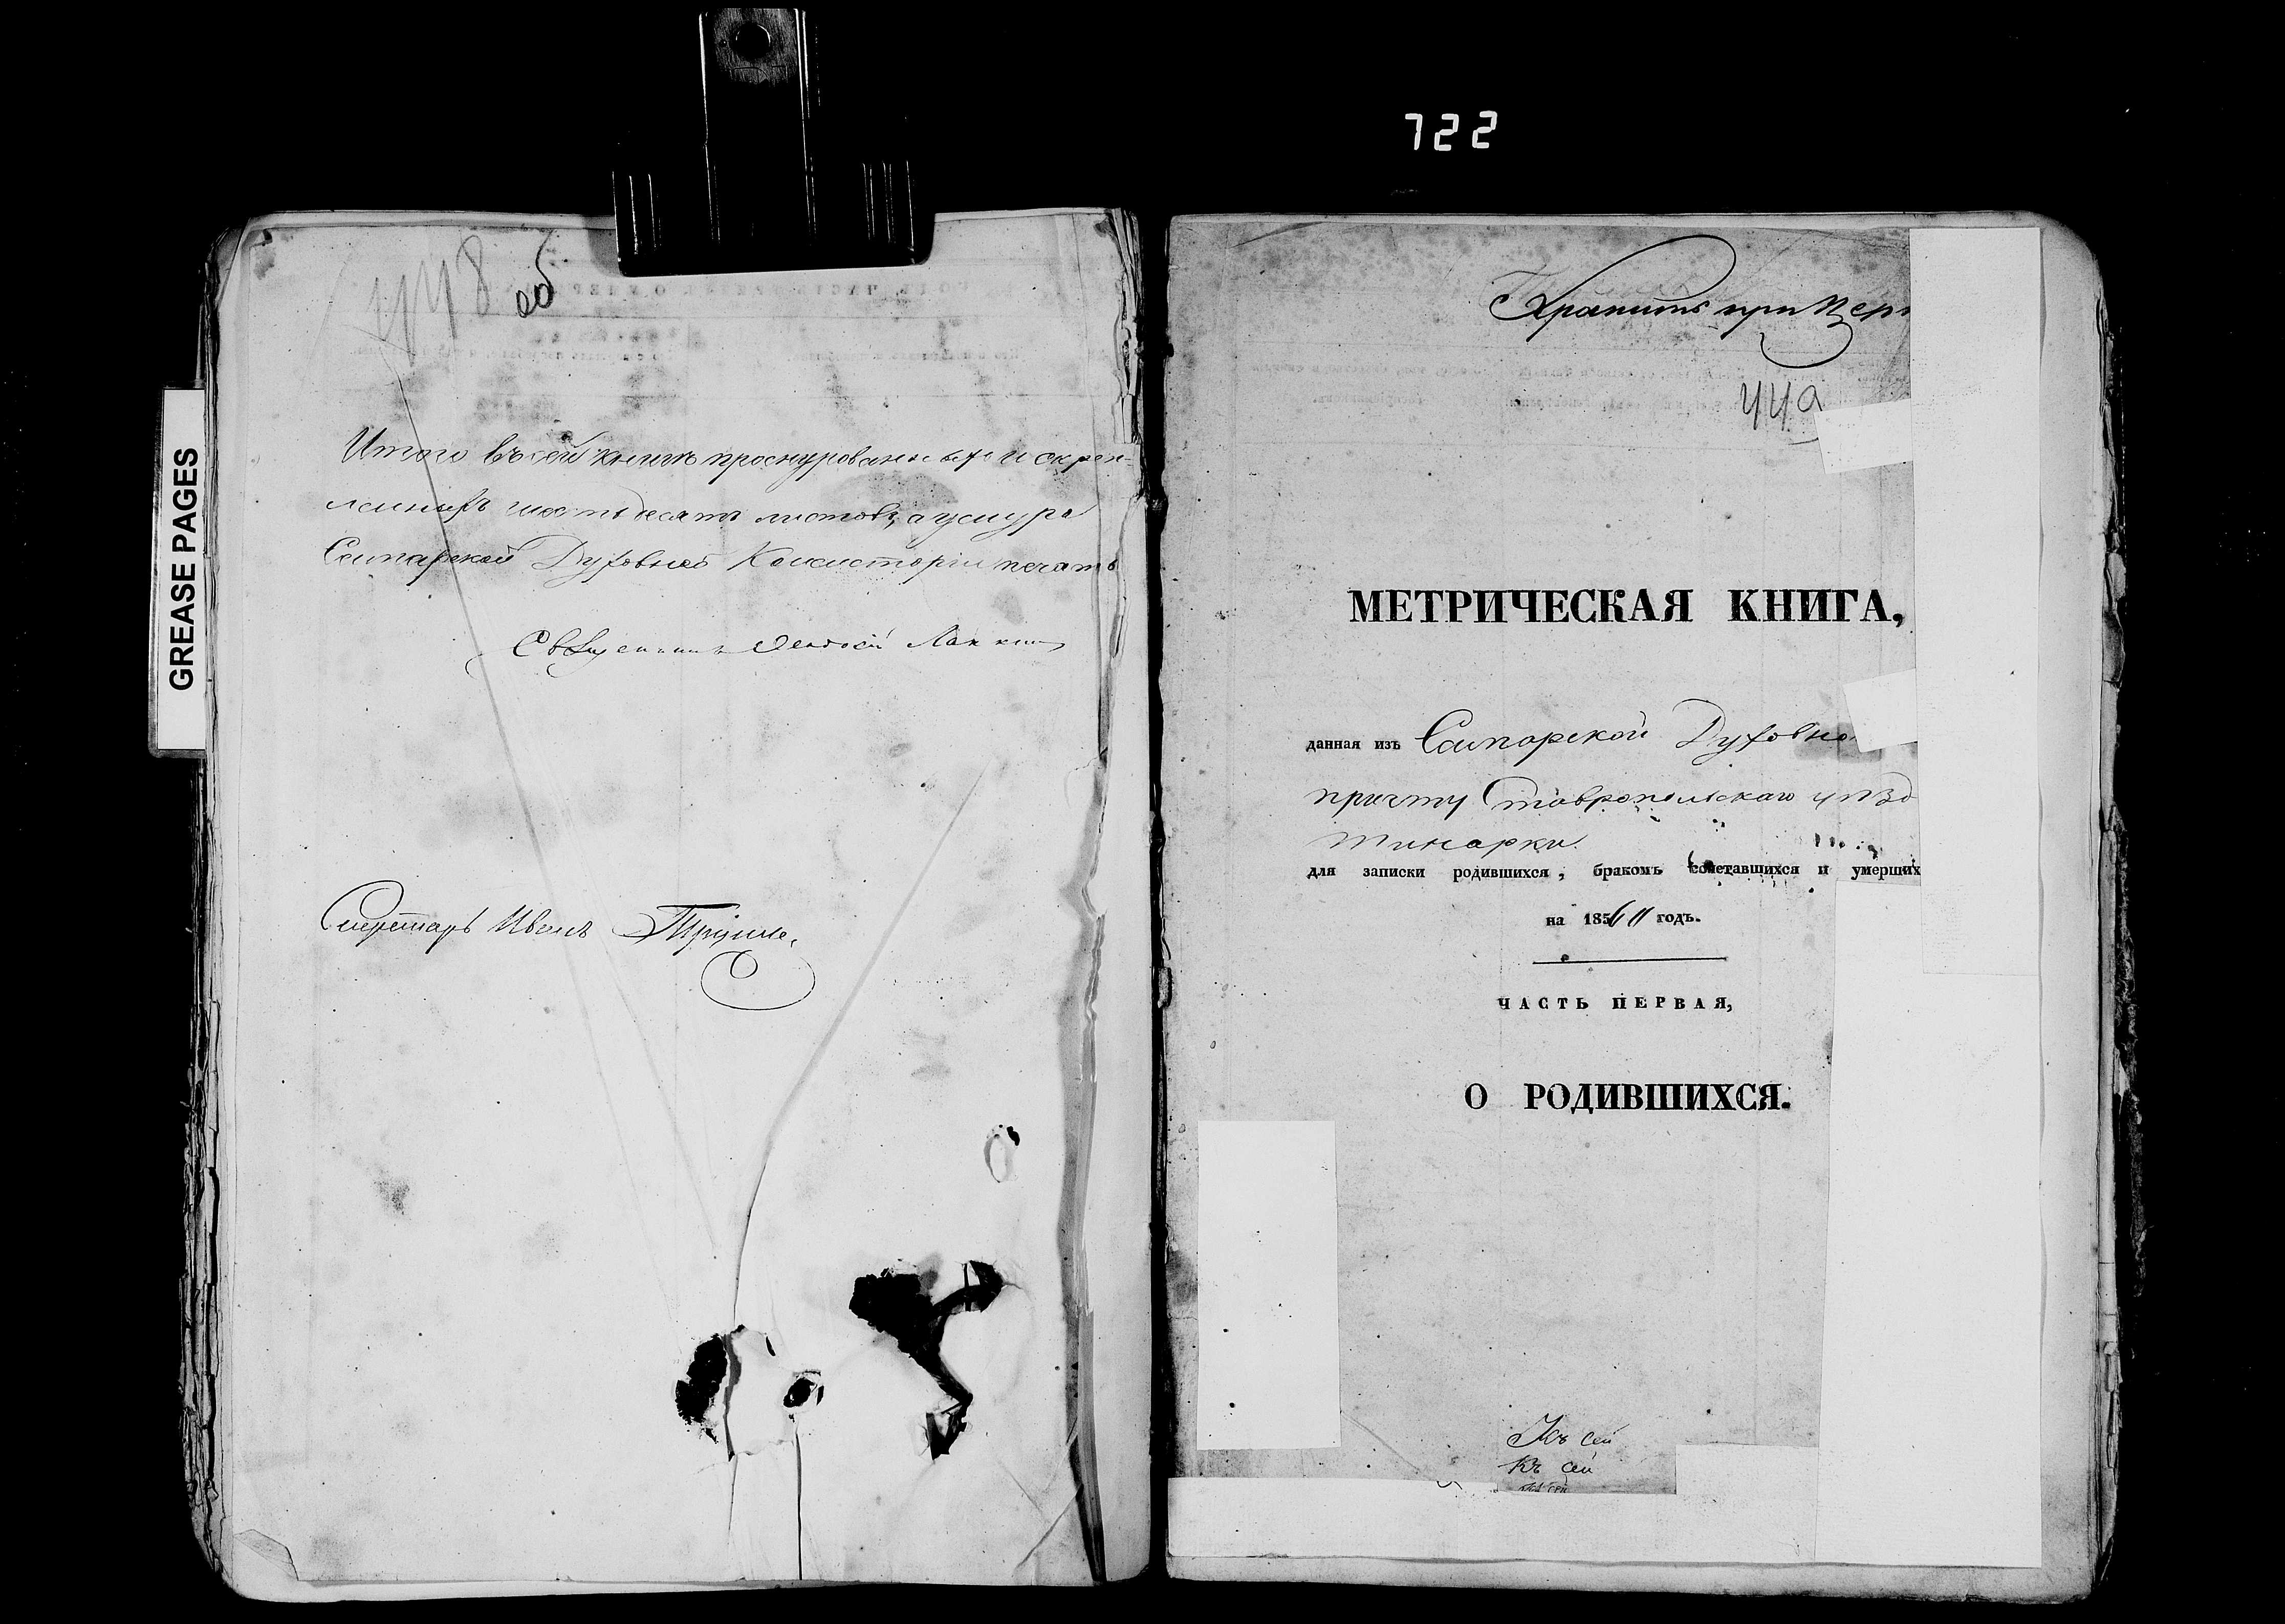 722
GREASE PAGES
448 об
Итого въ сей книгѣ прошнурованныхъ и скреп-
ленныхъ шестьдесятъ листовъ, а у шнура
Самарской Духовной Консисторіи печать
Священникъ
Секретарь Иванъ
Хранить при Цер
449
МЕТРИЧЕСКАЯ КНИГА,
данная изъ Самарской Духовно
причту Ставропольскаго уѣзд
Тинарки
для записки родившихся, бракомъ сочетавшихся и умерших
на 18 годъ.
ЧАСТЬ ПЕРВАЯ,
О РОДИВШИХСЯ.
Къ сей
Къ сей